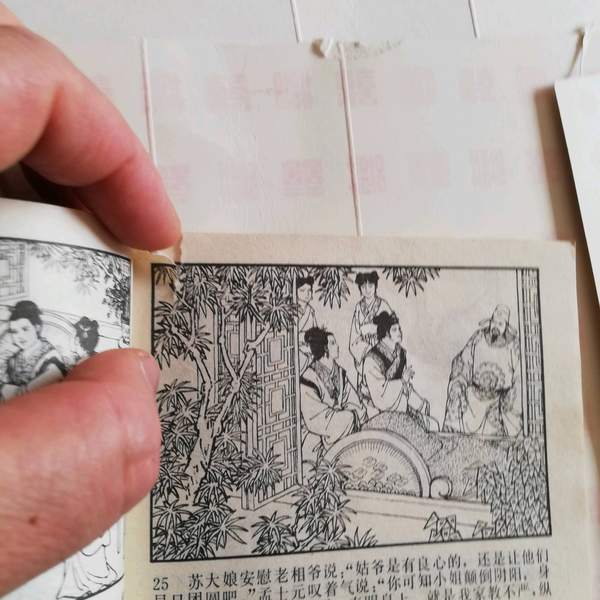 25 苏大娘安慰老相爷说：“姑爷是有良心的，还是让他们
早日团圆吧。”孟士元叹着气说：“你可知小姐颠倒阴阳，身
就是我家教不严，纵